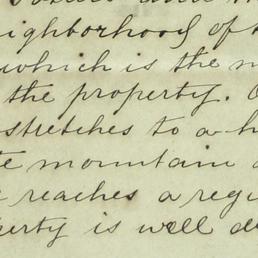 neighborhood of
which is the m
the property. O
stretches to a h
te mountain
e reaches a regi
perty is well de